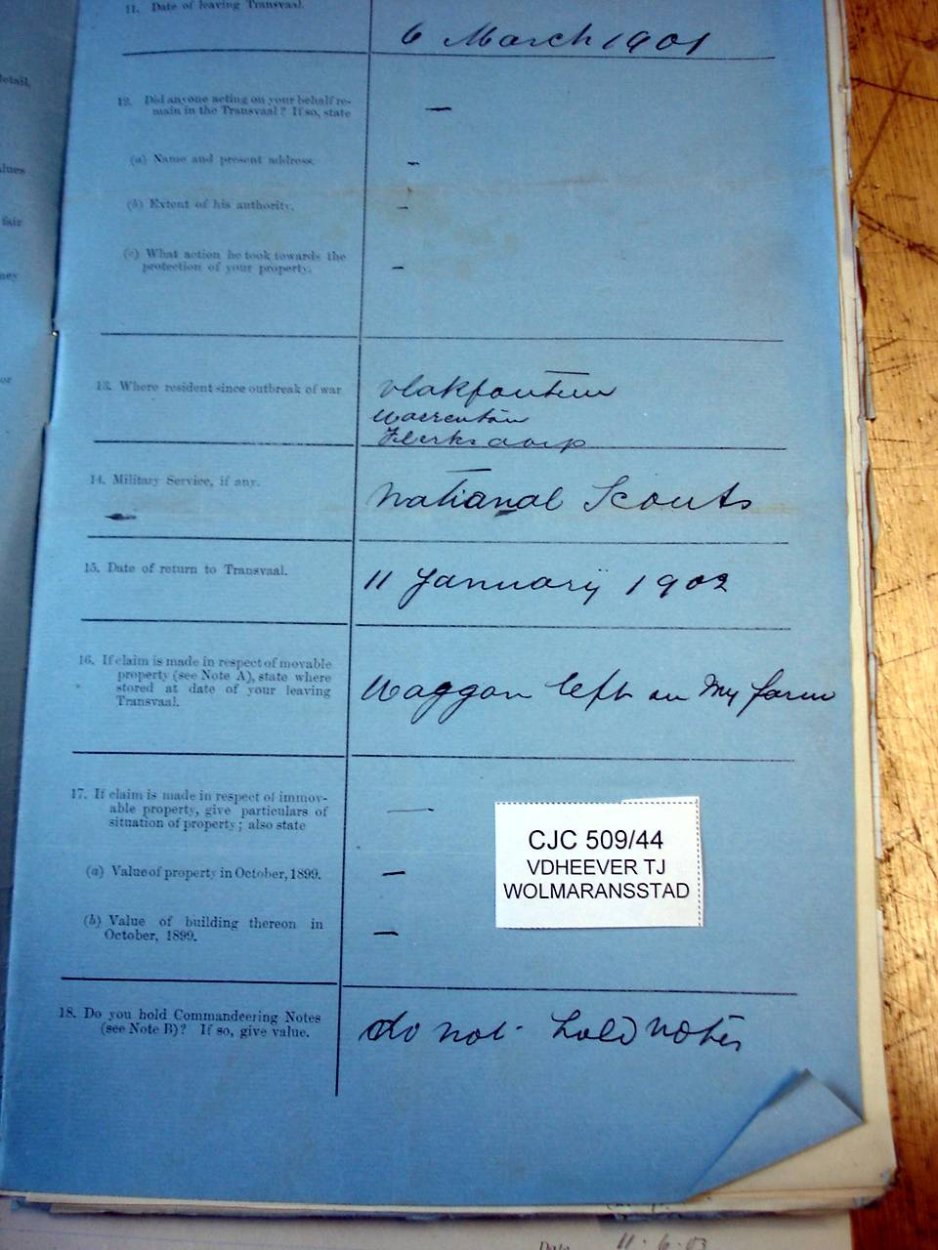 11. Date of leaving Transvaal.
6 March 1901
12. Did anyone acting on your behalf re-
main in the Transvaal? If so, state
—
(a) Name and present address.
-
(b) Extent of his authority.
-
(c) What action he took towards the
protection of your property.
-
13. Where resident since outbreak of war
Vlakfontein
Warrenton
Klerksdorp
14. Military Service, if any.
National Scouts
15. Date of return to Transvaal.
11 January 1902
16. If claim is made in respect of movable
property (see Note A), state where
stored at date of your leaving
Transvaal.
Waggon left on My farm
17. If claim is made in respect of immov-
able property, give particulars of
situation of property; also state
—
(a) Value of property in October, 1899.
—
(b) Value of building thereon in
October, 1899.
—
CJC 509/44
VDHEEVER TJ
WOLMARANSSTAD
18. Do you hold Commandeering Notes
(see Note B)? If so, give value.
do not hold notes
detail,
fair
or
Date
11.6.03